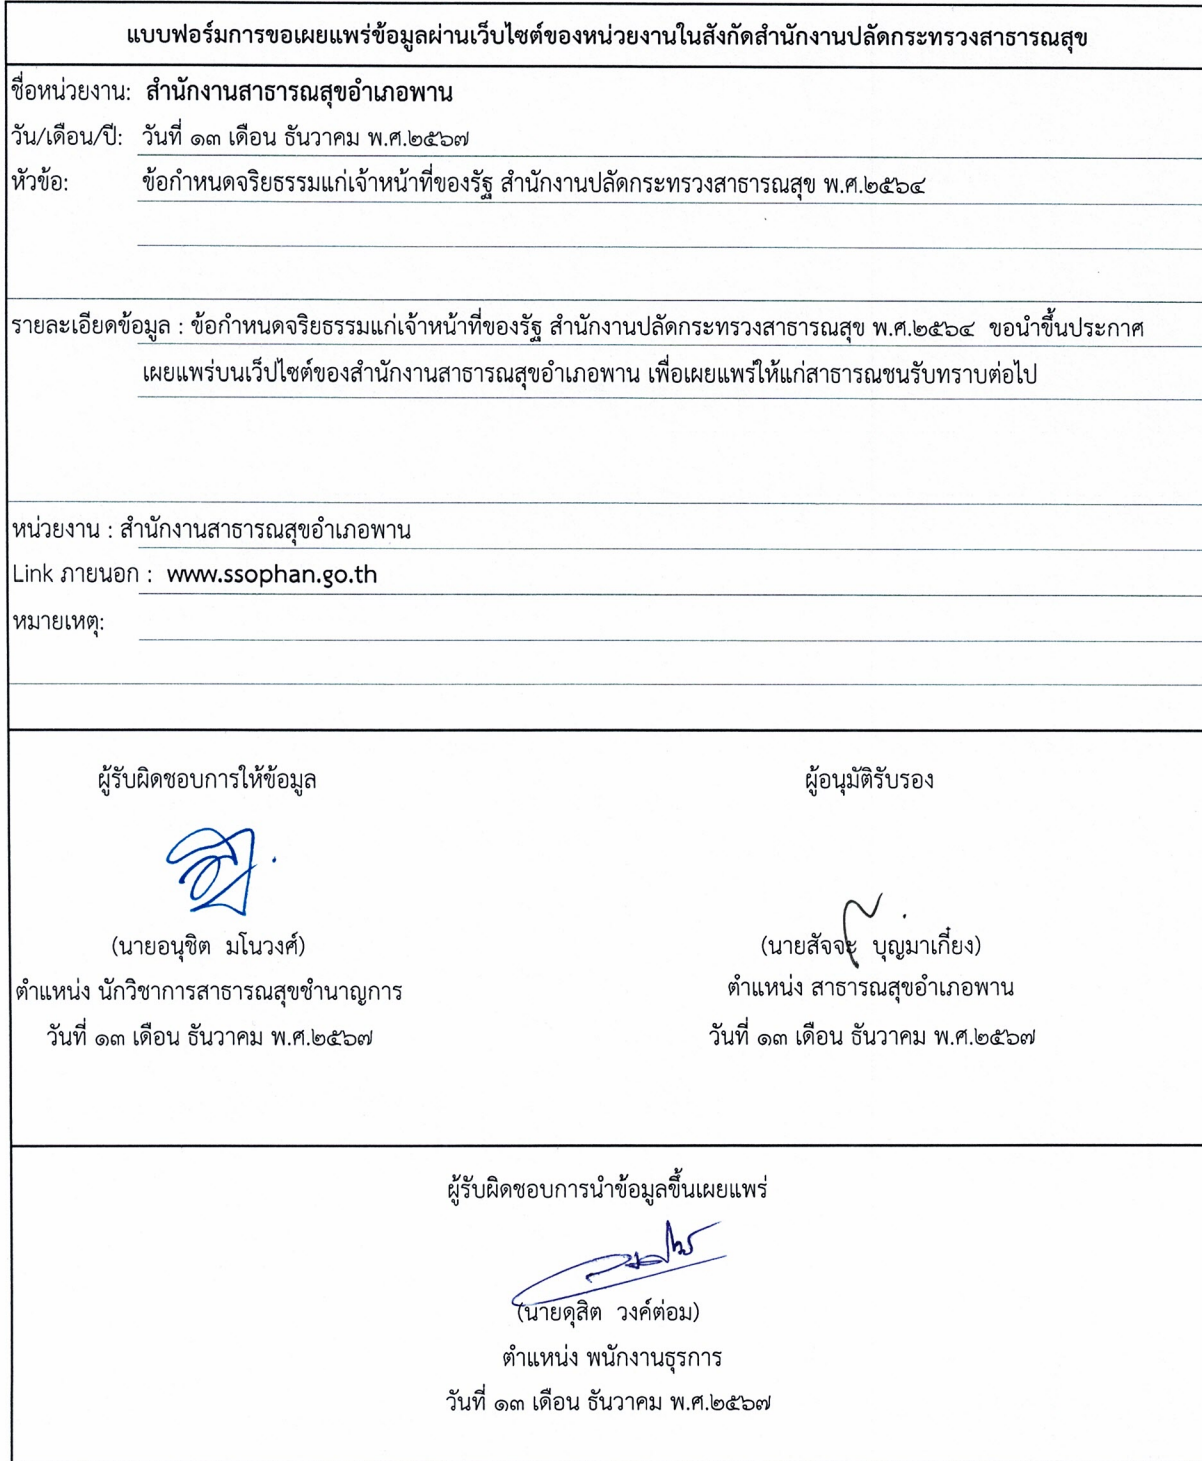 แบบฟอร์มการขอเผยแพร่ข้อมูลผ่านเว็บไซต์ของหน่วยงานในสังกัดสำนักงานปลัดกระทรวงสาธารณสุข
ชื่อหน่วยงาน: สำนักงานสาธารณสุขอำเภอพาน
วัน/เดือน/ปี: วันที่ ๑๓ เดือน ธันวาคม พ.ศ.๒๕๖๗
หัวข้อ: ข้อกำหนดจริยธรรมแก่เจ้าหน้าที่ของรัฐ สำนักงานปลัดกระทรวงสาธารณสุข พ.ศ.๒๕๖๔
รายละเอียดข้อมูล : ข้อกำหนดจริยธรรมแก่เจ้าหน้าที่ของรัฐ สำนักงานปลัดกระทรวงสาธารณสุข พ.ศ.๒๕๖๔ ขอนำขึ้นประกาศ
เผยแพร่บนเว็ปไซต์ของสำนักงานสาธารณสุขอำเภอพาน เพื่อเผยแพร่ให้แก่สาธารณชนรับทราบต่อไป
หน่วยงาน : สำนักงานสาธารณสุขอำเภอพาน
Link ภายนอก : www.ssophan.go.th
หมายเหตุ:
ผู้รับผิดชอบการให้ข้อมูล
(นายอนุชิต มโนวงศ์)
ตำแหน่ง นักวิชาการสาธารณสุขชำนาญการ
วันที่ ๑๓ เดือน ธันวาคม พ.ศ.๒๕๖๗
ผู้อนุมัติรับรอง
(นายสัจจะ บุญมาเกี๋ยง)
ตำแหน่ง สาธารณสุขอำเภอพาน
วันที่ ๑๓ เดือน ธันวาคม พ.ศ.๒๕๖๗
ผู้รับผิดชอบการนำข้อมูลขึ้นเผยแพร่
(นายดุสิต วงค์ต่อม)
ตำแหน่ง พนักงานธุรการ
วันที่ ๑๓ เดือน ธันวาคม พ.ศ.๒๕๖๗